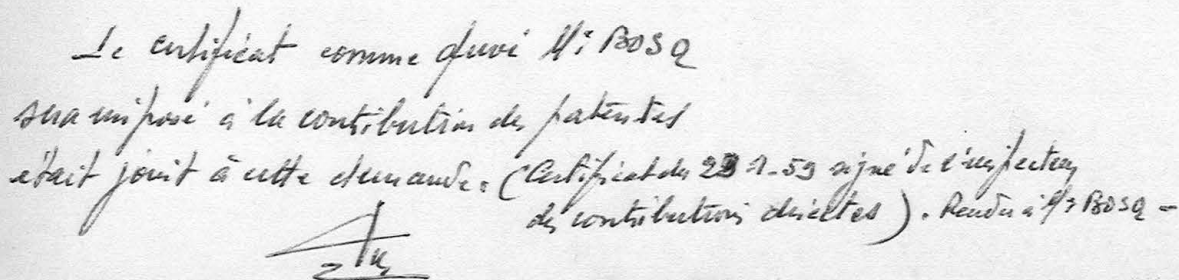 Le certificat comme quoi Mr BOSQ
sera imposé à la contribution des patentes
était joint à cette demande. (Certificat du 29-1-59 signé de l'inspecteur
des contributions directes). Rendu à Mr BOSQ -